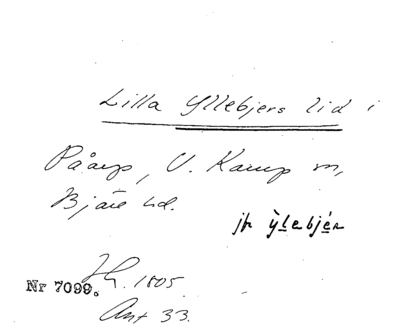 Lilla Yllebjers lid i
Påarp, V. Karup sn,
Bjäre hd.
jfr ỳlebjér
Nr 7099. 1805
Ant 33.